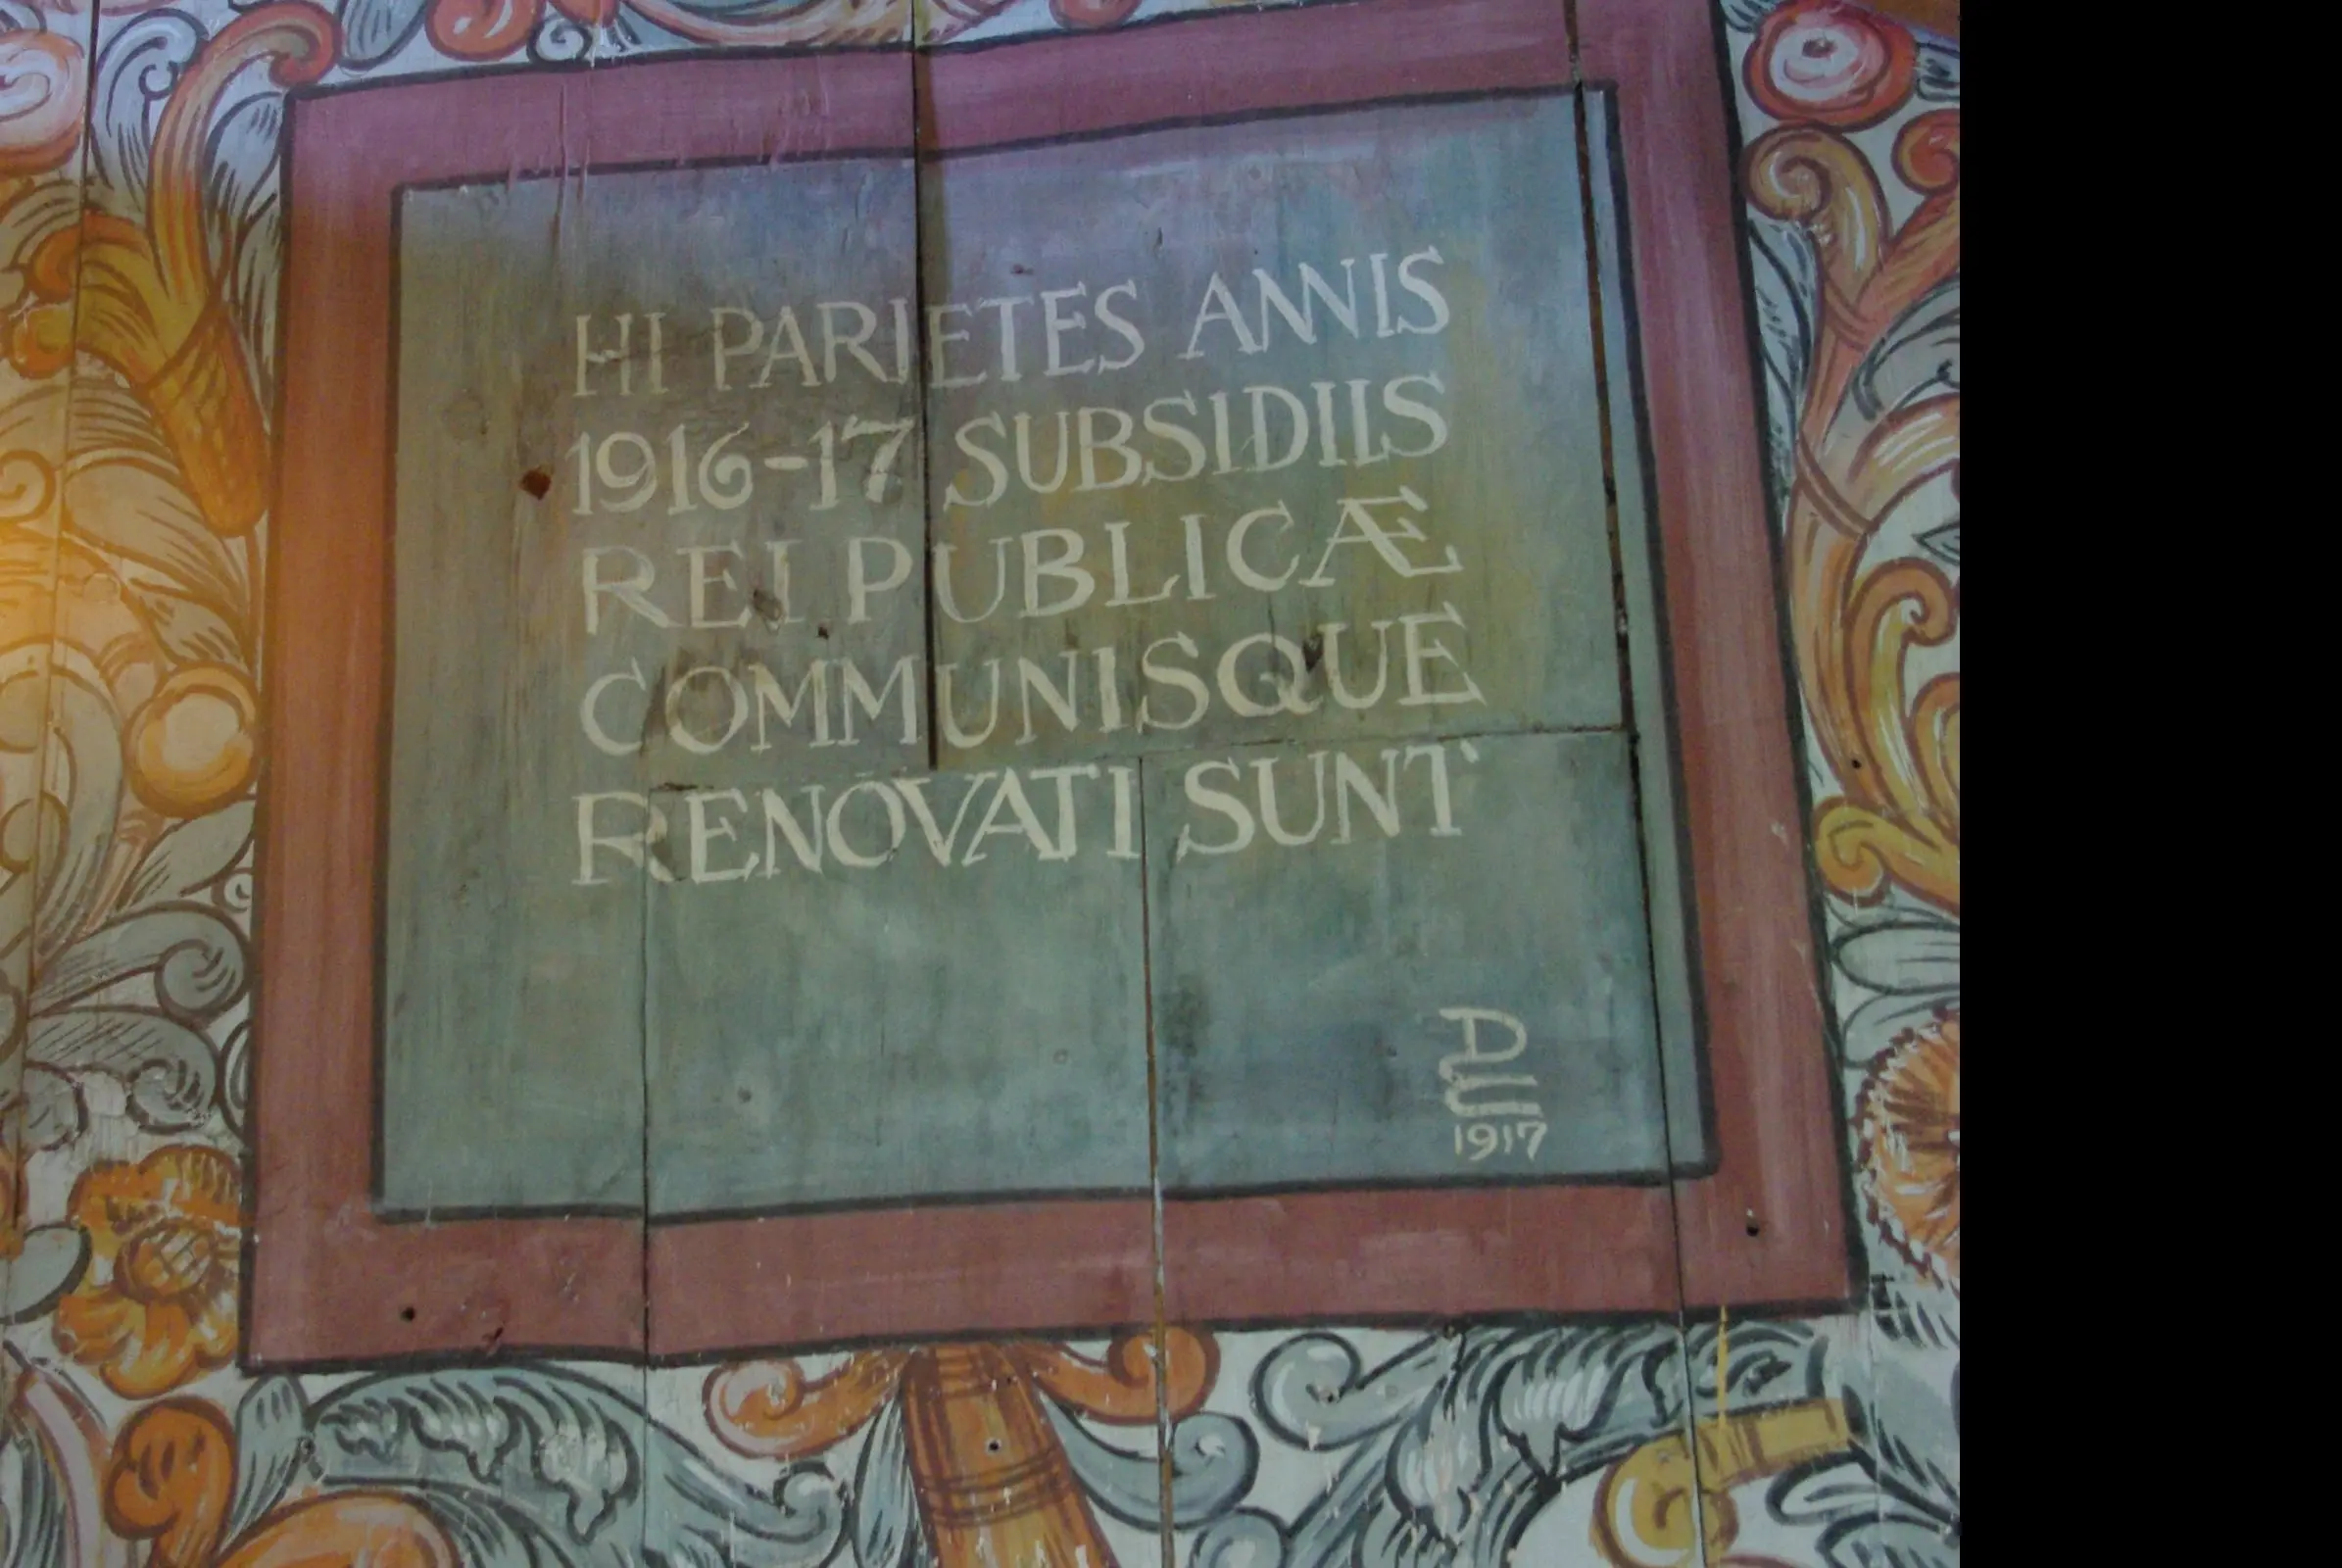 HI PARIETES ANNIS
1916-17 SUBSIDIIS
REI PUBLICÆ
COMMUNISQUE
RENOVATI SUNT
1917